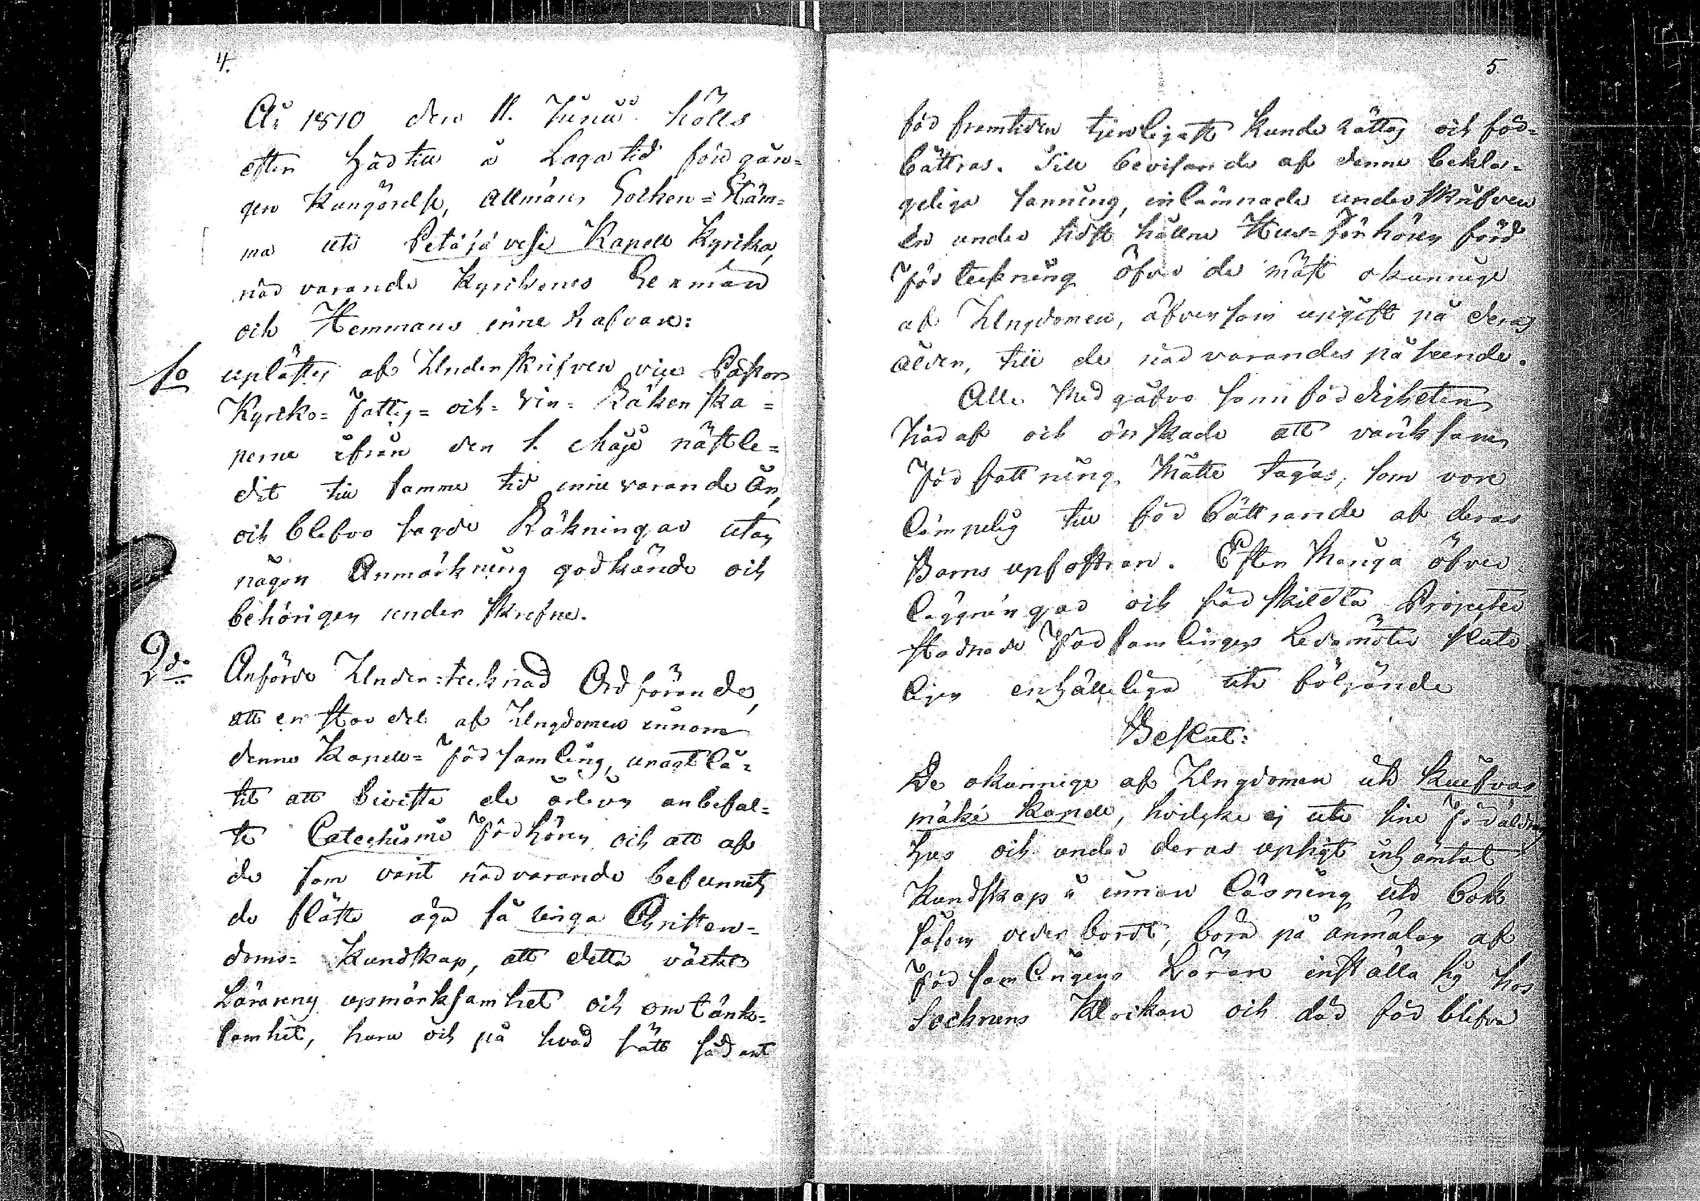 4.
År 1810 den 11. Junii hölls
efter här till å Laga tid föregån-
gen kungörelse, allmän Socken-Stäm-
ma uti Petäjävesi Kapell Kyrka,
närvarande Kyrkones Sexmän
och Hemmans innehafvare:
1o uplästes af Underskrifven vice Pastor
Kyrko- Fattig- och Vin- Räkenska-
perne ifrån den 1. Maji nästle-
dit till samma tid innevarande År,
och blefvo sagde Räkningar utan
någon Anmärkning godkände och
behörigen underskrefne.
2do Anförde Undertecknad Ordförande,
att en stor del af Ungdomen innom
denna Kapell-Församling, uraktlå-
tit att bivista de årligen anbefal-
te Catechismi Förhören och att af
de som varit närvarande befunnits
de fläste äga så ringa Christen-
doms- Kundskap, att detta väckte
Lärarens upmärksamhet och omtänk-
samhet, huru och på hvad sätt sådant
5
för framtiden tjenligast kunde rättas och för-
bättras. Till bevisande af denne bekla-
geliga sanning, inlämnade underskrifven
en under sidst hållne Hus-Förhören förd
Förteckning öfver de mäst okunnige
af Ungdomen, äfvensom upgift på deras
ålder, till de närvarandes påseende.
Alle medgåfvo sannfärdigheten
häraf och önskade att värksam
Författning måtte tagas, som vore
lämpelig till förbättrande af deras
Barns upfostran. Efter många öfver-
läggningar och särskildta Projecter
stadnade Församlingens Ledamöter slute-
ligen enhälleliga uti följande
Beslut:
De okunnige af Ungdomen uti Kuifvas-
mäki Kapell, hvilka ej uti sine Föräldrars
hus och under deras upsigt inhämtat
kundskap i innan läsning uti bok
såsom vederbordt, böra på anmälan af
Församlingens Lärare inställa sig hos
Sochnens Klockare och där för blifva